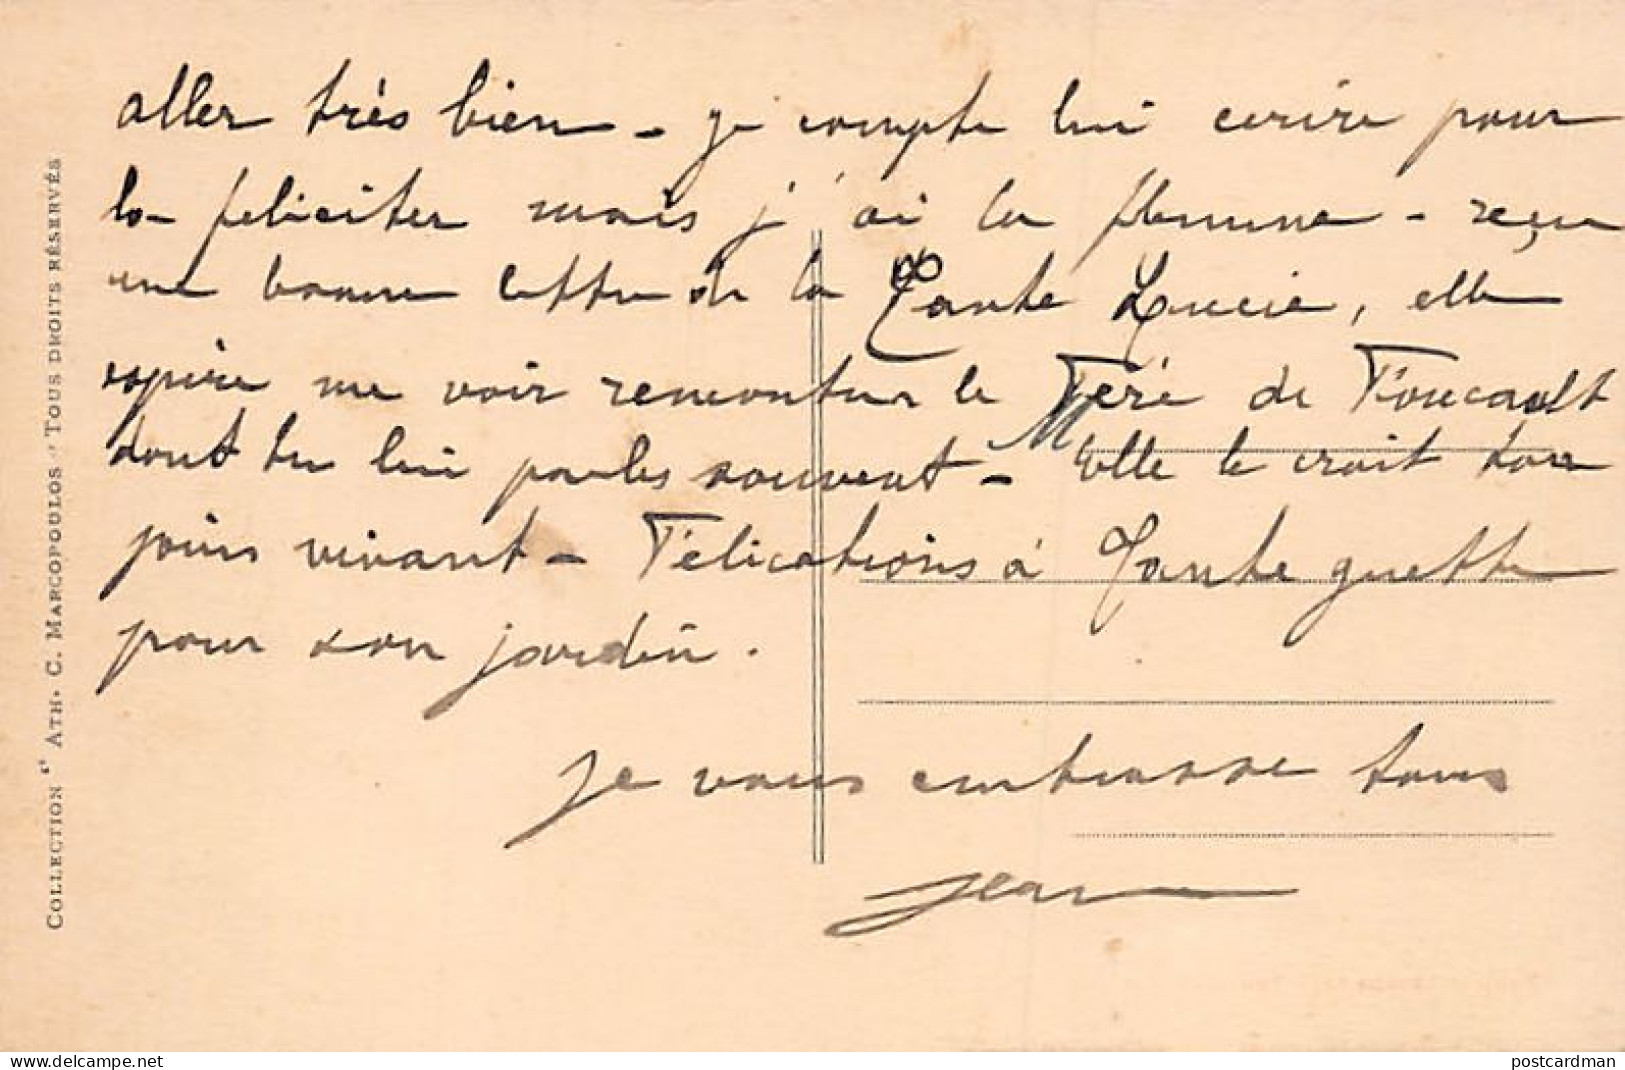 aller très bien - je compte lui ecrire pour
la feliciter mais j'ai la flemme - reçu
une bonne lettre de la Tante Lucie, elle
espère me voir remonter le Père de Foucault
dont tu lui parles souvent - elle le croit tou
jours vivant - Félications à Tante guette
pour son jardin.
Je vous embrasse tous
Jean
COLLECTION “ ATH. C. MARCOPOULOS „ TOUS DROITS RÉSERVÉS
postcardman